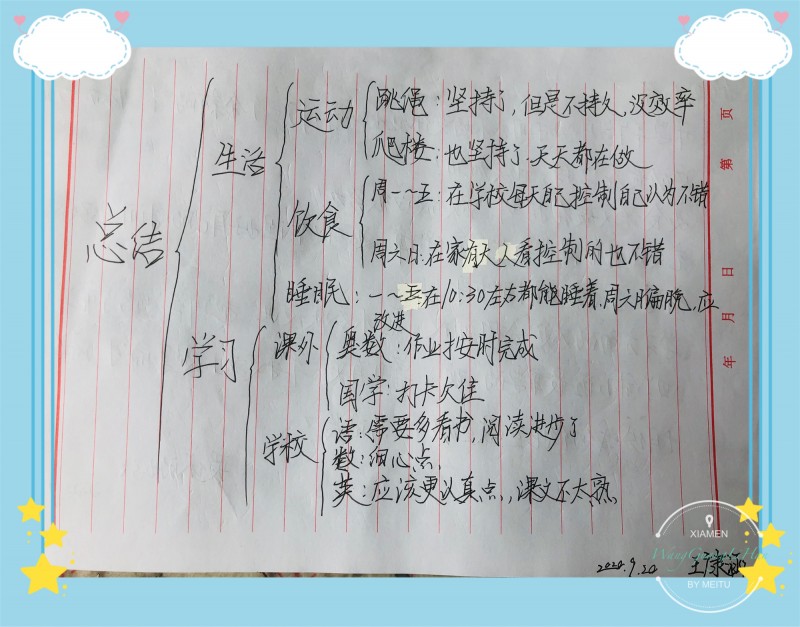 总结
生活
运动
跳绳：坚持了，但是不持久，没效率
爬楼：也坚持了，天天都在做
饮食
周一～五：在学校每天自己控制自己认为不错
周六日：在家有大人看控制的也不错
睡眠：一～五在10:30左右都能睡着，周六日偏晚，应
改进
学习
课外
奥数：作业按时完成
国学：打卡欠佳
学校
语：需要多看书，阅读进步了
数：细心点，
英：应该更认真点，课文不太熟。
第 页
年 月 日
2020.9.20
XIAMEN
BY MEITU